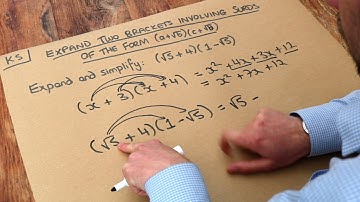 K5
EXPAND TWO BRACKETS INVOLVING SURDS
OF THE FORM (a+√b)(c+√d)
Expand and simplify: (√5 + 4)(1-√5)
(x + 3)(x + 4) = x² + 4x + 3x + 12
= x² + 7x + 12
(√5 + 4)(1 - √5) = √5 -